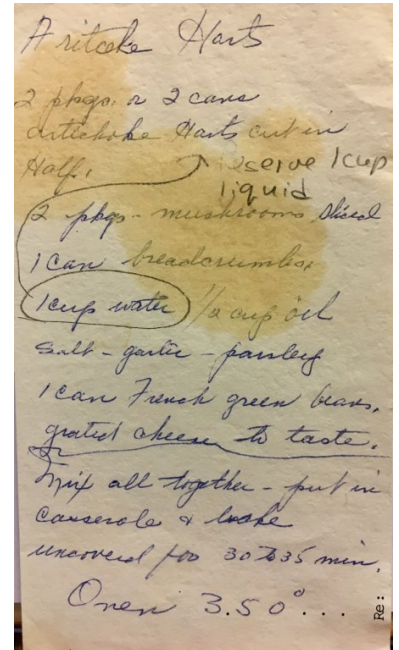 Aritcoke Harts
2 pkgs. or 2 cans
artichoke Harts cut in
Half.
Reserve 1 cup
liquid
2 pkgs - mushrooms, sliced
1 Can breadcrumbs
1 cup water 1/2 cup oil
Salt - garlic - parsley
1 Can French green beans.
grated cheese to taste.
Mix all together - put in
casserole & bake
uncovered for 30 to 35 min.
Oven 3.50°...
Re: